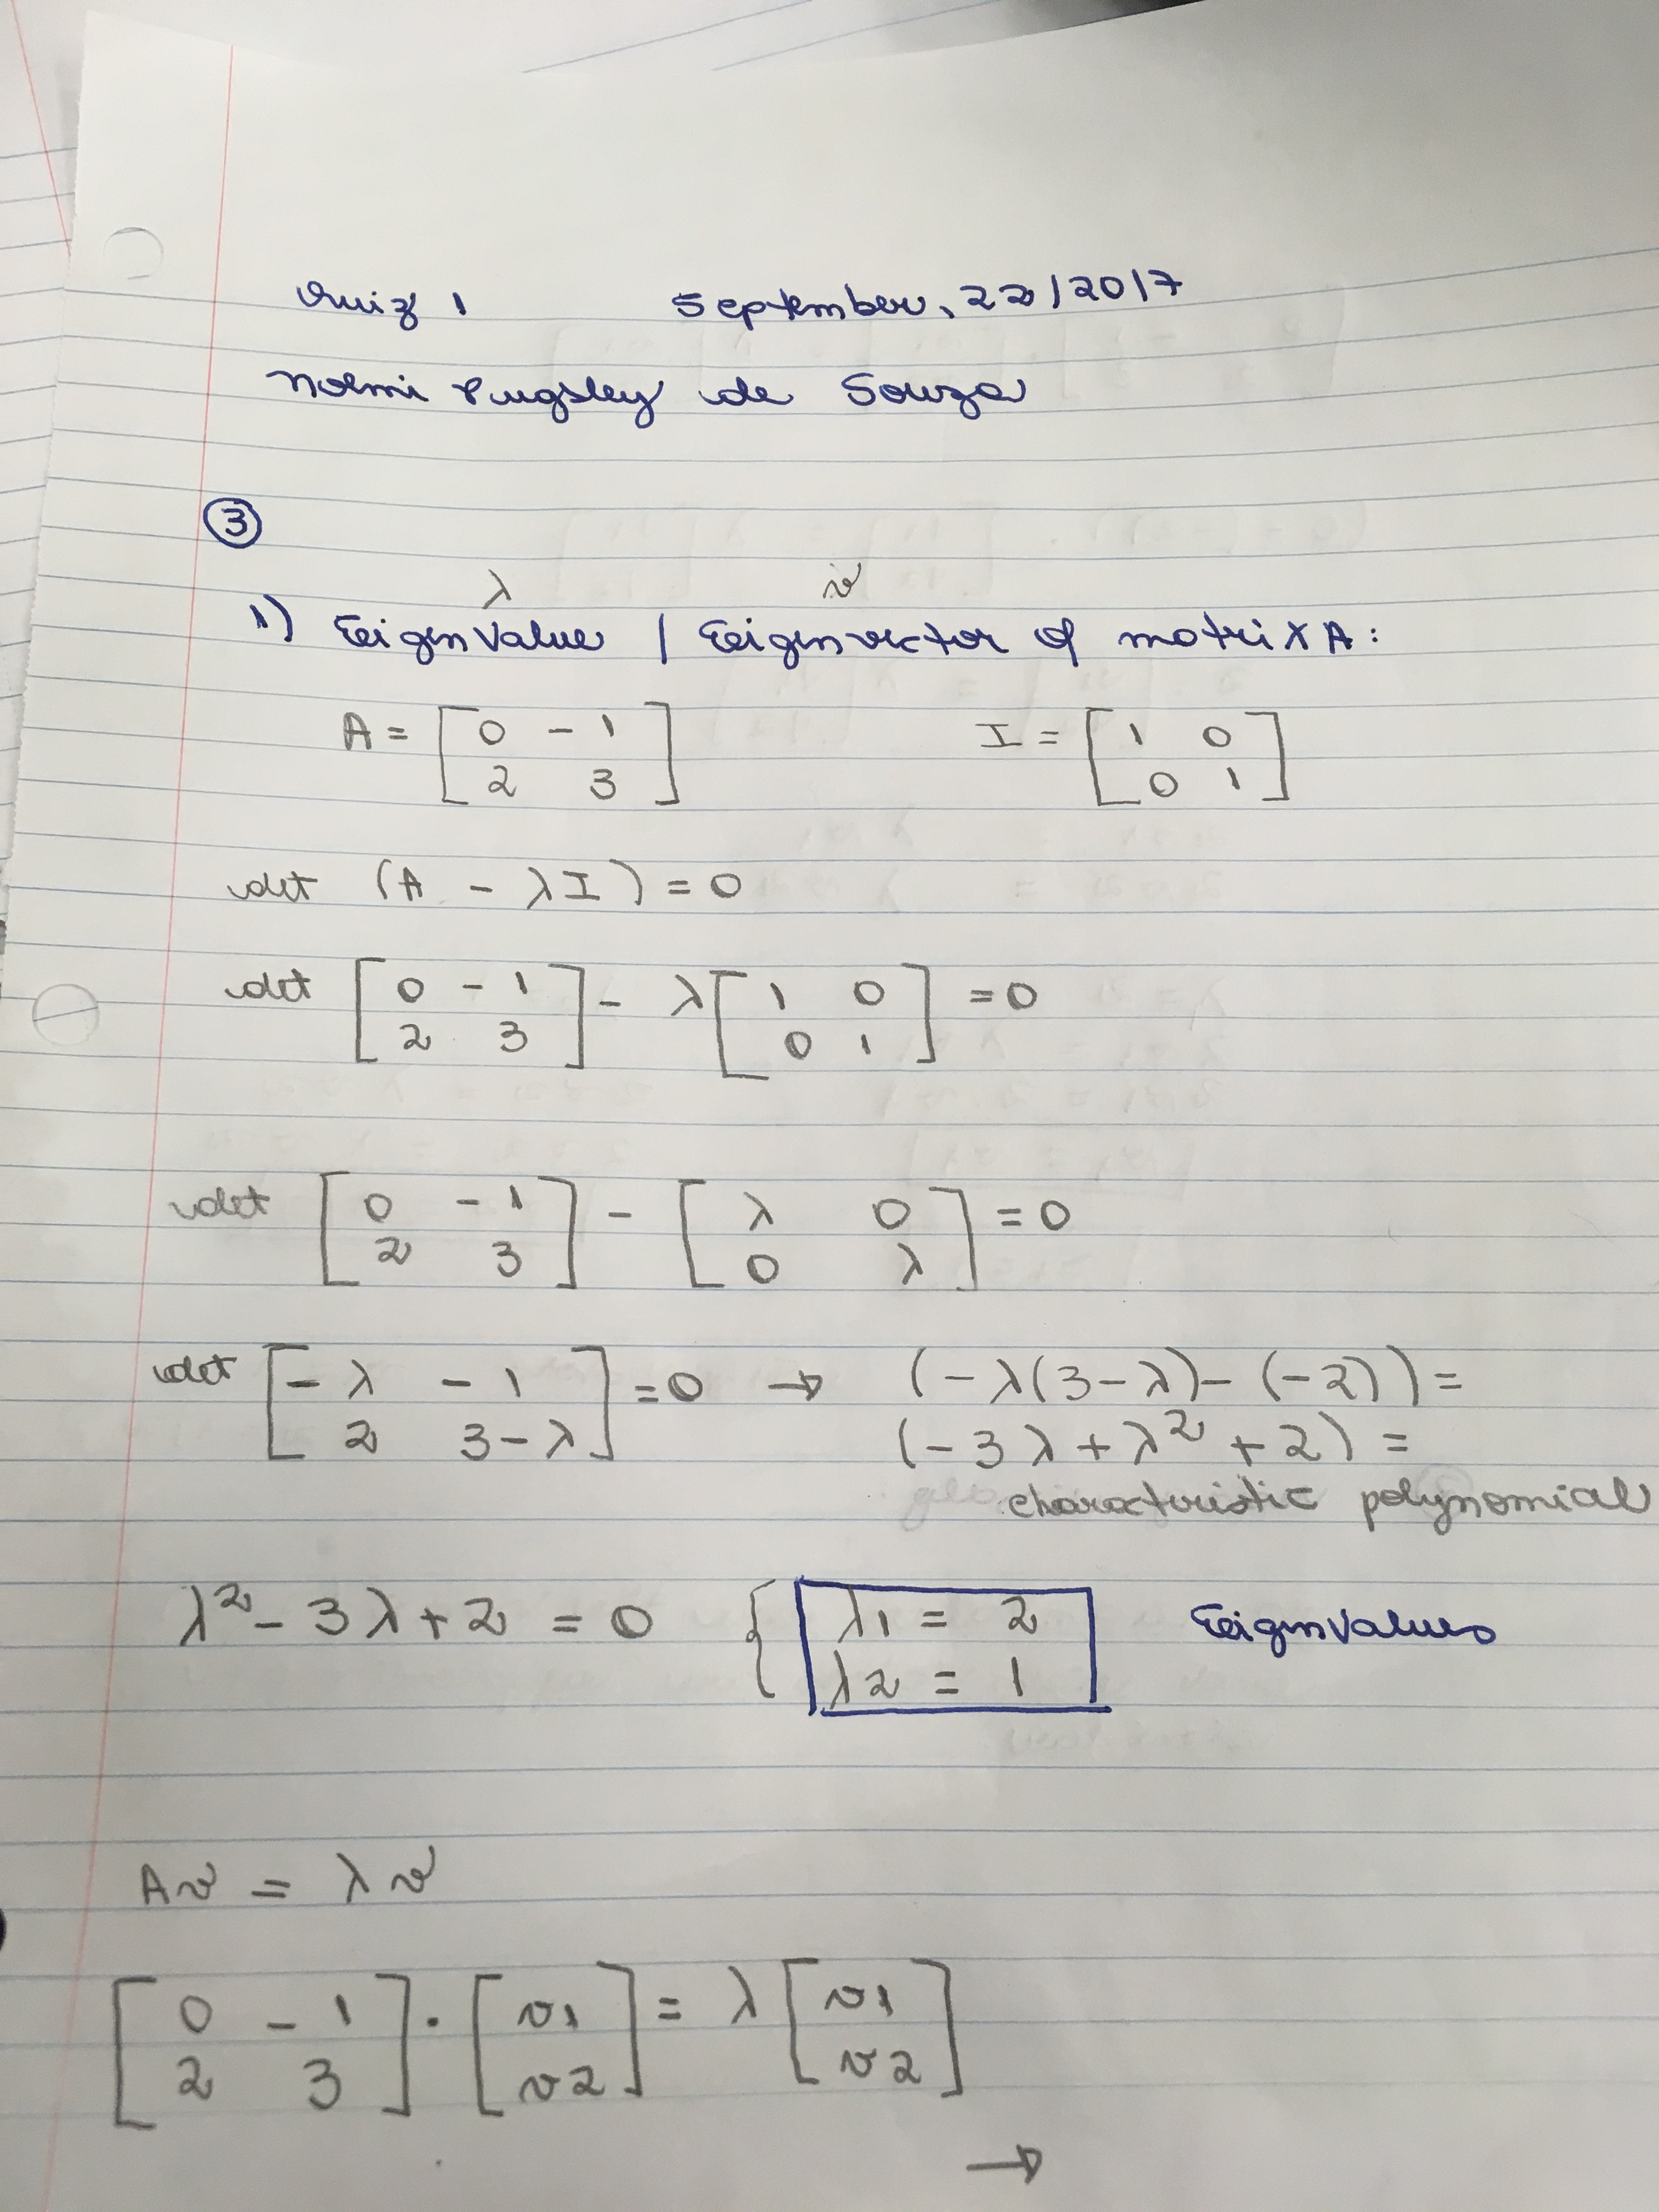 Quiz 1 September, 22/2017
Noemi Pugsley de Souza
3
λ v
1) Eigenvalue / Eigenvector of matrix A:
A = [ 0 -1 ] I = [ 1 0 ]
[ 2 3 ] [ 0 1 ]
det (A - λI) = 0
det [ 0 -1 ] - λ [ 1 0 ] = 0
[ 2 3 ] [ 0 1 ]
det [ 0 -1 ] - [ λ 0 ] = 0
[ 2 3 ] [ 0 λ ]
det [ -λ -1 ] = 0 → (-λ(3-λ)-(-2)) =
[ 2 3-λ ] (-3λ+λ²+2) =
characteristic polynomial
λ² - 3λ + 2 = 0 { λ1 = 2 Eigenvalues
λ2 = 1
Av = λv
[ 0 -1 ] · [ v1 ] = λ [ v1 ]
[ 2 3 ] [ v2 ] [ v2 ]
→